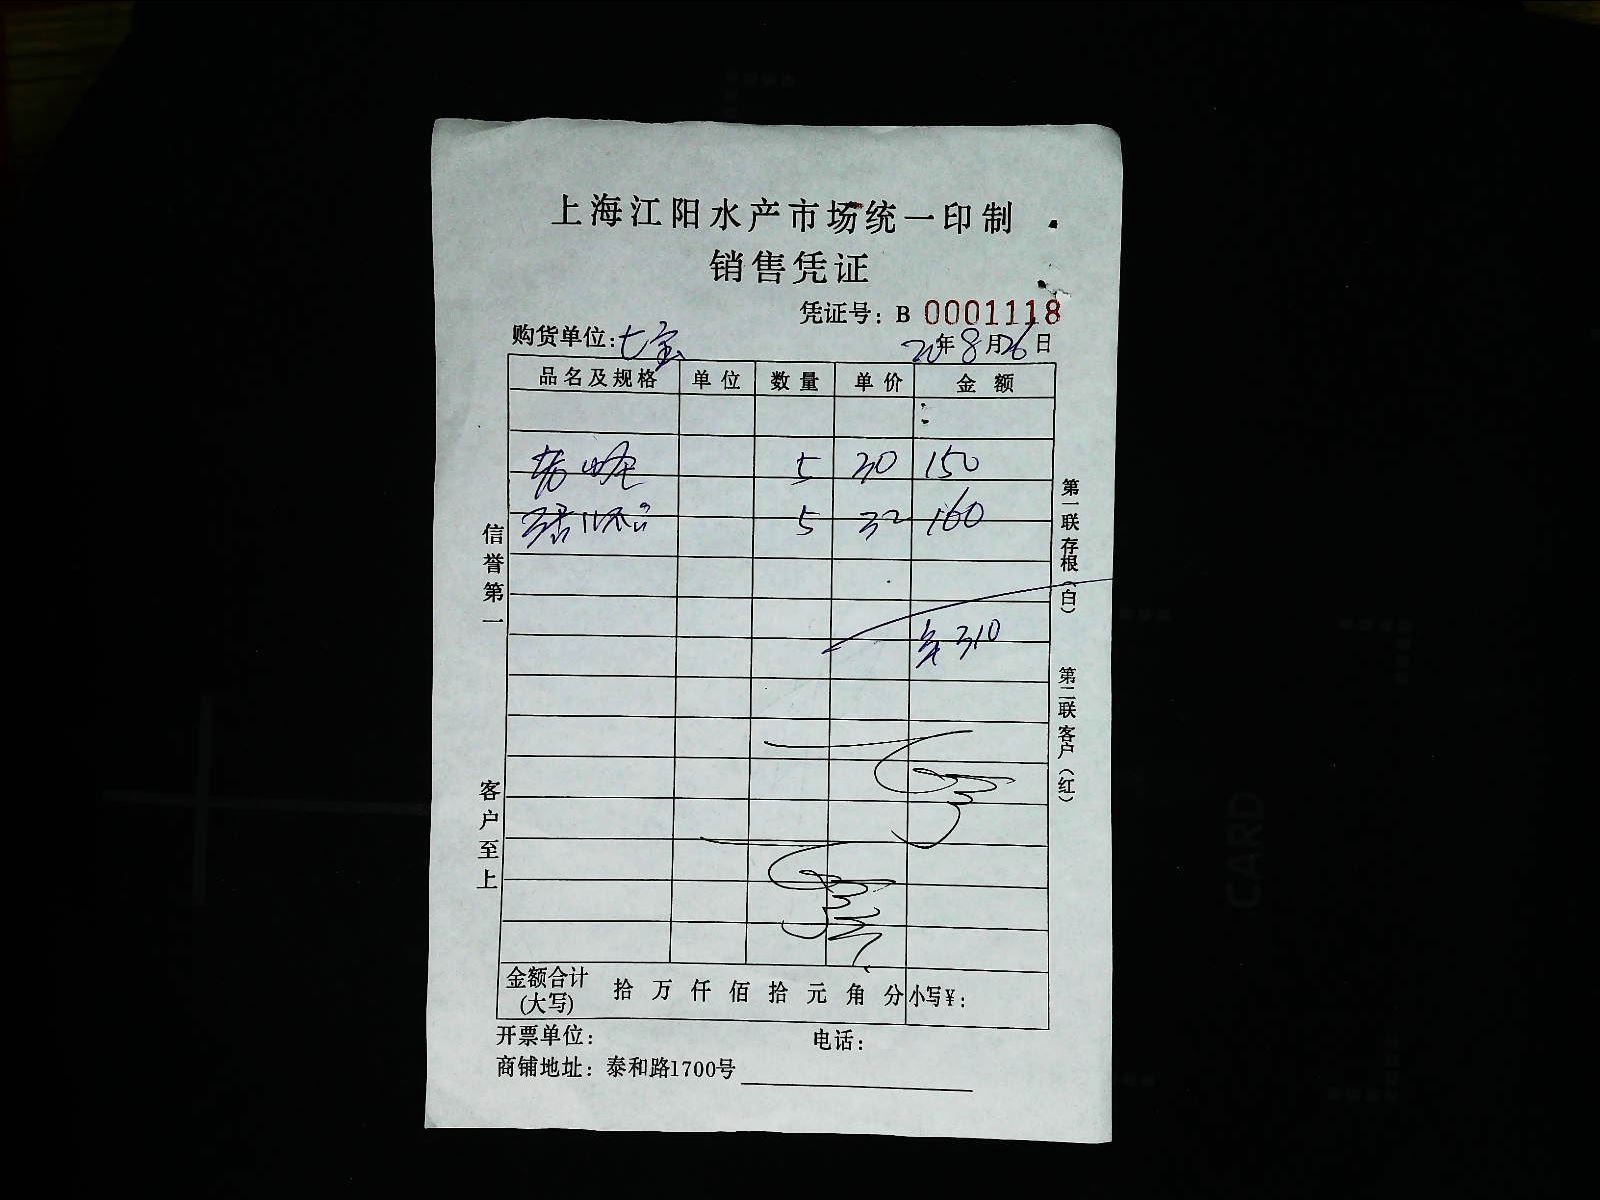 上海江阳水产市场统一印制
销售凭证
凭证号: B 0001118
购货单位: 七宝 20年8月26日
品名及规格 单位 数量 单价 金额
5 30 150
5 32 160
310
金额合计(大写) 拾 万 仟 佰 拾 元 角 分 小写¥:
开票单位: 电话:
商铺地址: 泰和路1700号
信誉第一
客户至上
第一联存根(白)
第二联客户(红)
CARD